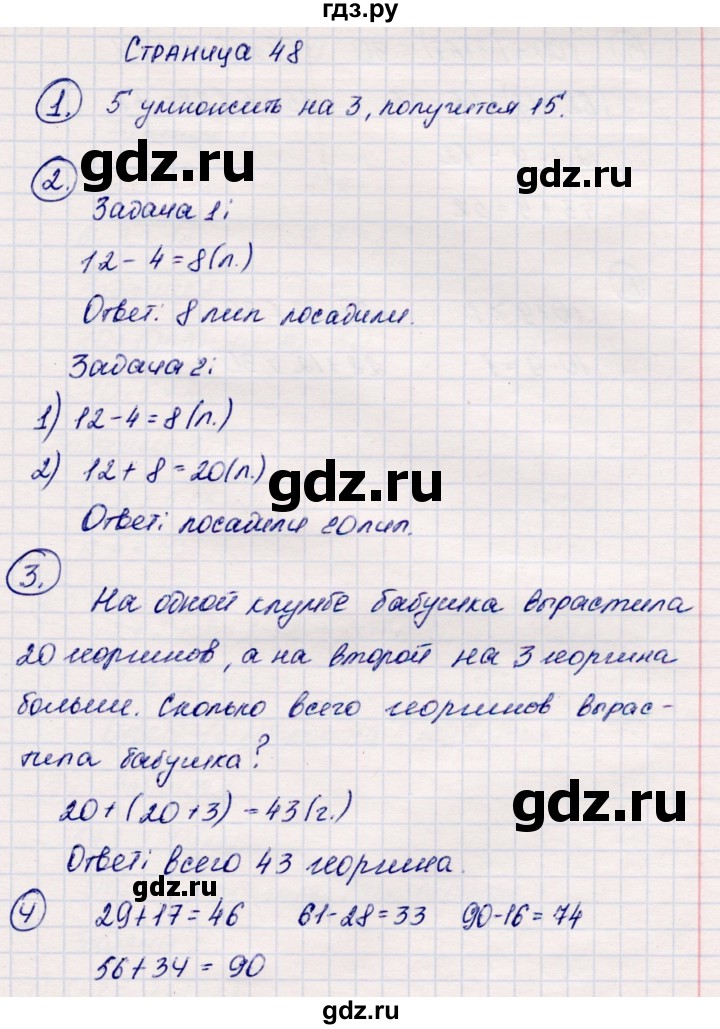 гдз.ру
Страница 48
1. 5 умножить на 3, получится 15.
gdz.ru
gdz.ru
2.
Задача 1:
12 - 4 = 8 (л.)
Ответ: 8 лип посадили.
Задача 2:
1) 12 - 4 = 8 (л.)
2) 12 + 8 = 20 (л.)
gdz.ru
Ответ: посадили 20 лип.
3.
На одной клумбе бабушка вырастила
20 георгинов, а на второй на 3 георгина
больше. Сколько всего георгинов вырас-
тила бабушка?
gdz.ru
20 + (20 + 3) = 43 (г.)
Ответ: всего 43 георгина.
gdz.ru
4 29 + 17 = 46 61 - 28 = 33 90 - 16 = 74
56 + 34 = 90
gdz.ru